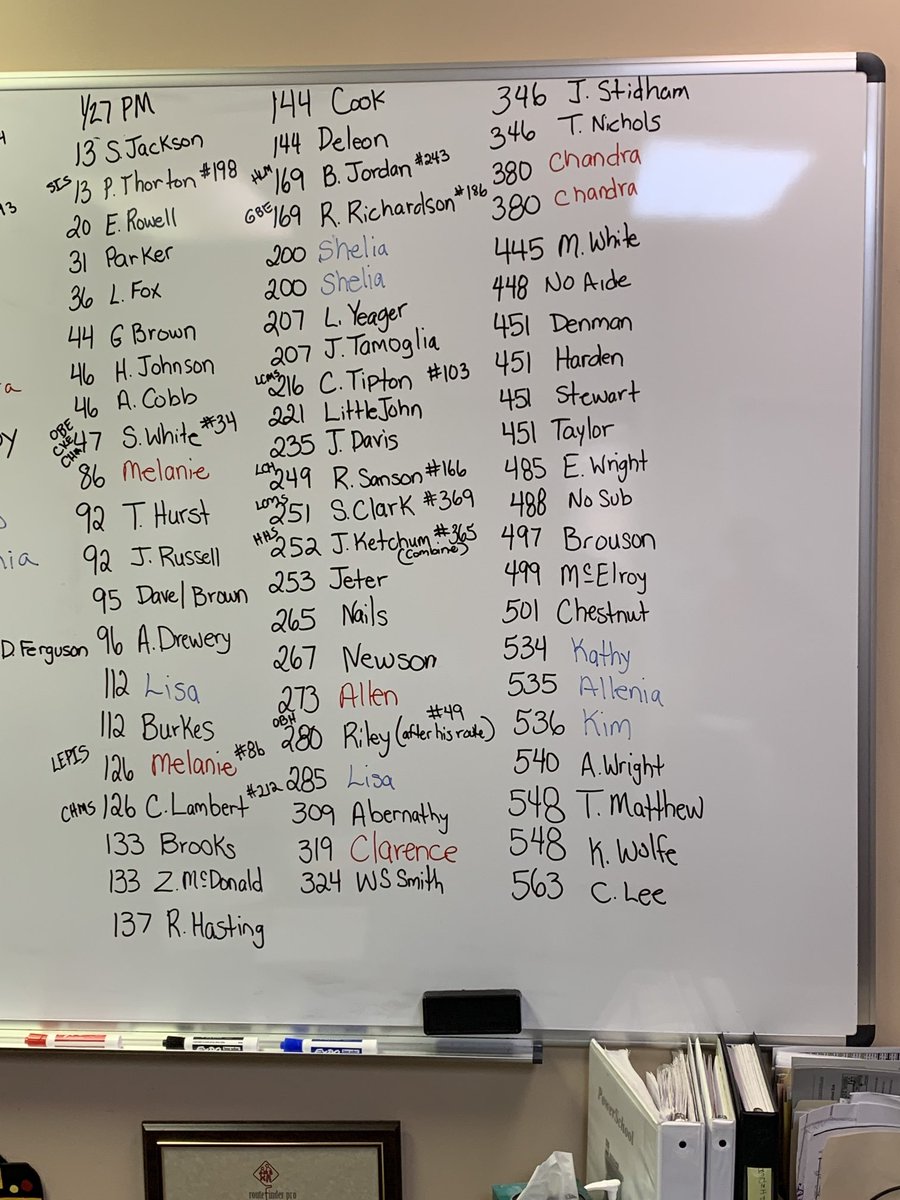 1/27 PM
13 S. Jackson
SIS 13 P. Thorton #198
20 E. Rowell
31 Parker
36 L. Fox
44 G Brown
46 H. Johnson
46 A. Cobb
OBE CVE CHM 47 S. White #34
86 Melanie
92 T. Hurst
92 J. Russell
95 Dave/Brown
D. Ferguson 96 A. Drewery
112 Lisa
112 Burkes
LEPIS 126 Melanie #86
CHMS 126 C. Lambert #212
133 Brooks
133 Z. McDonald
137 R. Hasting
144 Cook
144 Deleon
HLM 169 B. Jordan #243
GBE 169 R. Richardson #186
200 Shelia
200 Shelia
207 L. Yeager
207 J. Tamoglia
LCMS 216 C. Tipton #103
221 LittleJohn
235 J. Davis
LCH 249 R. Sanson #166
LCMS 251 S. Clark #369
HHS 252 J. Ketchum #365
(combine)
253 Jeter
265 Nails
267 Newson
273 Allen
OBH 280 Riley (after his route) #49
285 Lisa
309 Abernathy
319 Clarence
324 WS Smith
346 J. Stidham
346 T. Nichols
380 Chandra
380 Chandra
445 M. White
448 No Aide
451 Denman
451 Harden
451 Stewart
451 Taylor
485 E. Wright
488 No Sub
497 Brouson
499 McElroy
501 Chestnut
534 Kathy
535 Allenia
536 Kim
540 A. Wright
548 T. Matthew
548 K. Wolfe
563 C. Lee
EXPO
EXPO
PowerSchool
routefinder pro